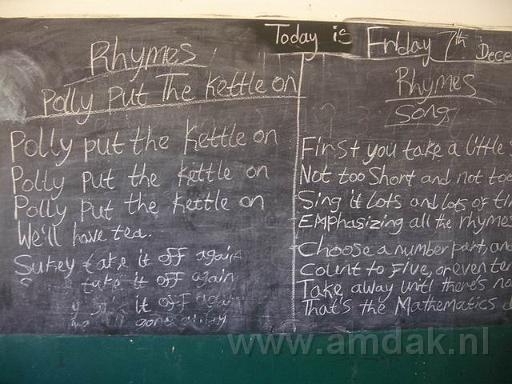 Today is Friday 7th Dece
Rhymes
Polly Put The Kettle on
Polly put the kettle on
Polly put the kettle on
Polly put the kettle on
We'll have tea.
Sukey take it off again
take it off again
it off again
Rhymes
Song
First you take a little
Not too Short and not too
Sing it lots and lots of ti
Emphasizing all the rhymes
Choose a number part, and
Count to Five, or even ten
Take away until there's no
That's the Mathematics
www.amdak.nl